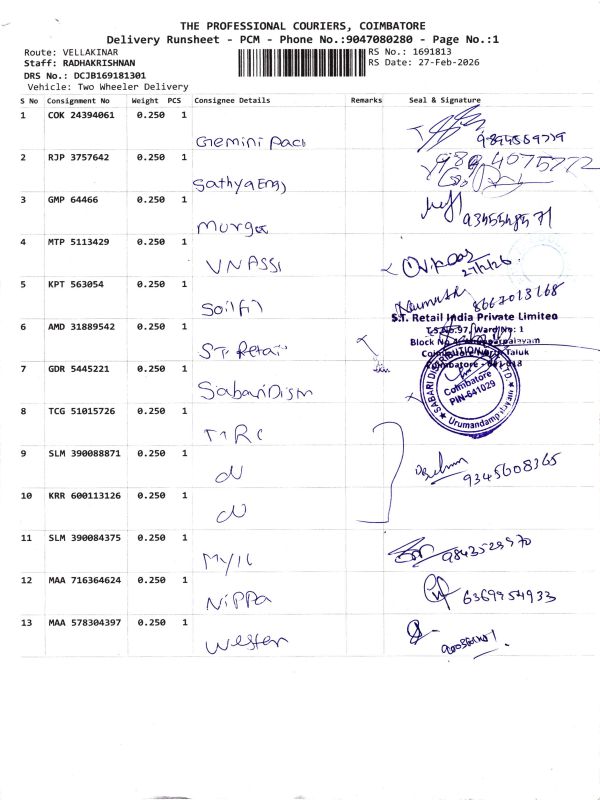 THE PROFESSIONAL COURIERS, COIMBATORE
Delivery Runsheet - PCM - Phone No.:9047080280 - Page No.:1
Route: VELLAKINAR
RS No.: 1691813
Staff: RADHAKRISHNAN
RS Date: 27-Feb-2026
DRS No.: DCJB169181301
Vehicle: Two Wheeler Delivery
S No Consignment No Weight PCS Consignee Details Remarks Seal & Signature
1 COK 24394061 0.250 1
Gemini Pack
2 RJP 3757642 0.250 1
Sathya Engg
3 GMP 64466 0.250 1
9345548571
4 MTP 5113429 0.250 1
VNASSI
27/2/26
5 KPT 563054 0.250 1
Soilfil
8667013168
S.T. Retail India Private Limited
6 AMD 31889542 0.250 1
Block No
S.T. Retail
Taluk
7 GDR 5445221 0.250 1
SABARI DISTRIBUTION
Coimbatore
PIN-641029
Urumandampalayam
Sabari Distn
8 TCG 51015726 0.250 1
9 SLM 390088871 0.250 1
9345608365
10 KRR 600113126 0.250 1
11 SLM 390084375 0.250 1
9843529970
12 MAA 716364624 0.250 1
Nippa
6369954933
13 MAA 578304397 0.250 1
Western